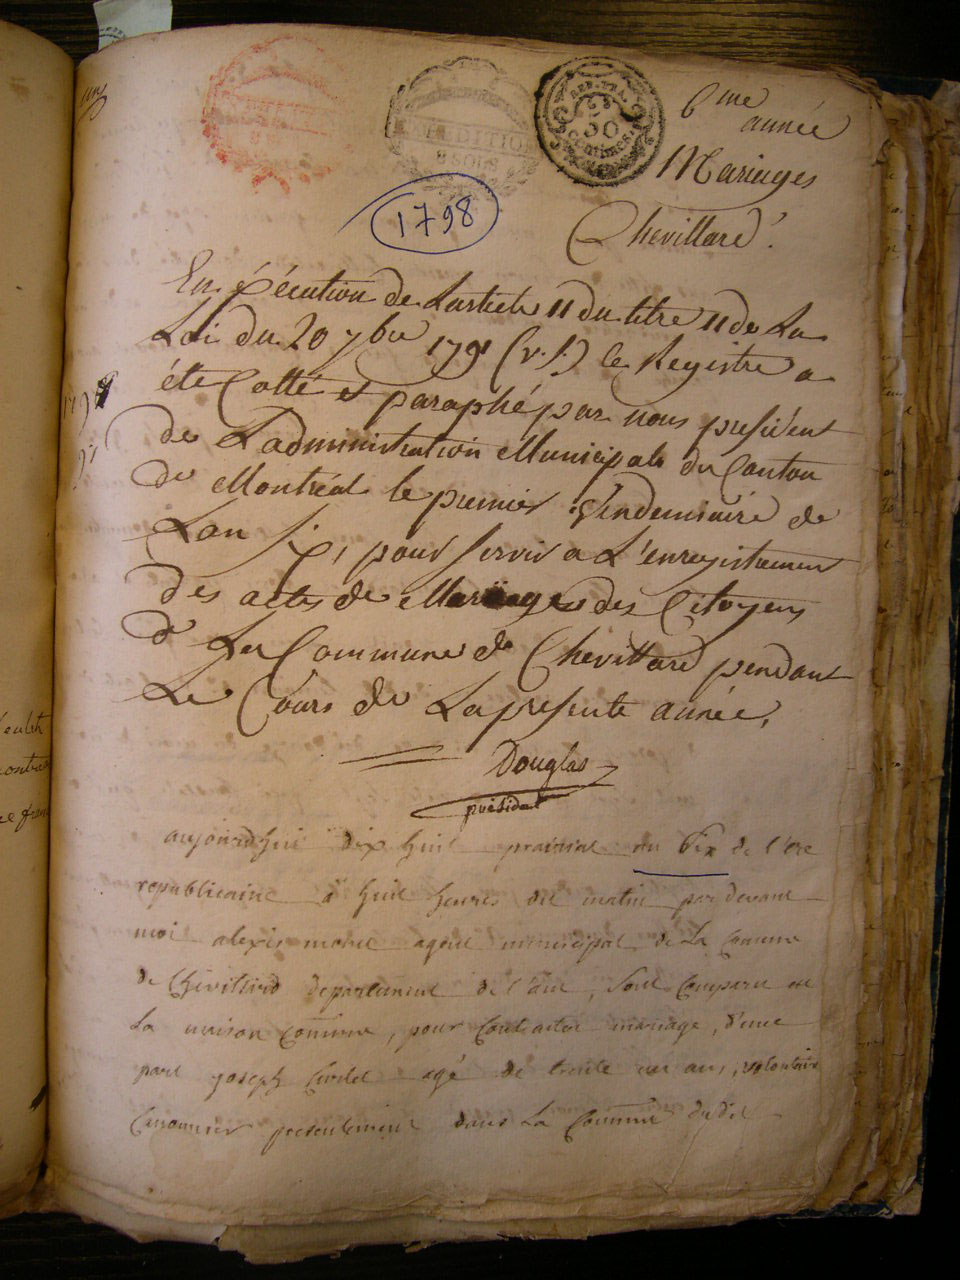 6me
année
Mariages
Chevillard.
REP. FRA.
50
centimes.
EXPEDITION
8 SOLS
1798
En Exécution de Larticle 11 du titre 11 de La
Loi du 20 7bre 1791 (v. s.) le Registre a
été Cotté et paraphé par nous président
de L'administration Municipale du Canton
de Montréal le premier Vendemiaire de
Lan Six, pour servir a L'enregistrement
des actes de Mariages des Citoyens
de La Commune de Chevillard pendant
Le Cours de La presente année.
Douglas
président
aujourdhui dix huit prairial an Six de l'ere
republicaine a huit heures du matin par devant
moi alexis agent municipal de La Comune
de Chevillard departement de l'ain, sont Comparu en
La maison Comune, pour Contracter mariage, d'une
part joseph agé de trente un ans, volontaire
Canonnier presentement dans La Comune dudit